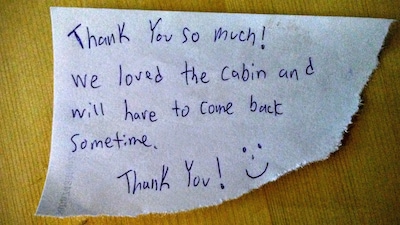 Thank You so much!
we loved the cabin and
will have to come back
sometime.
Thank You!